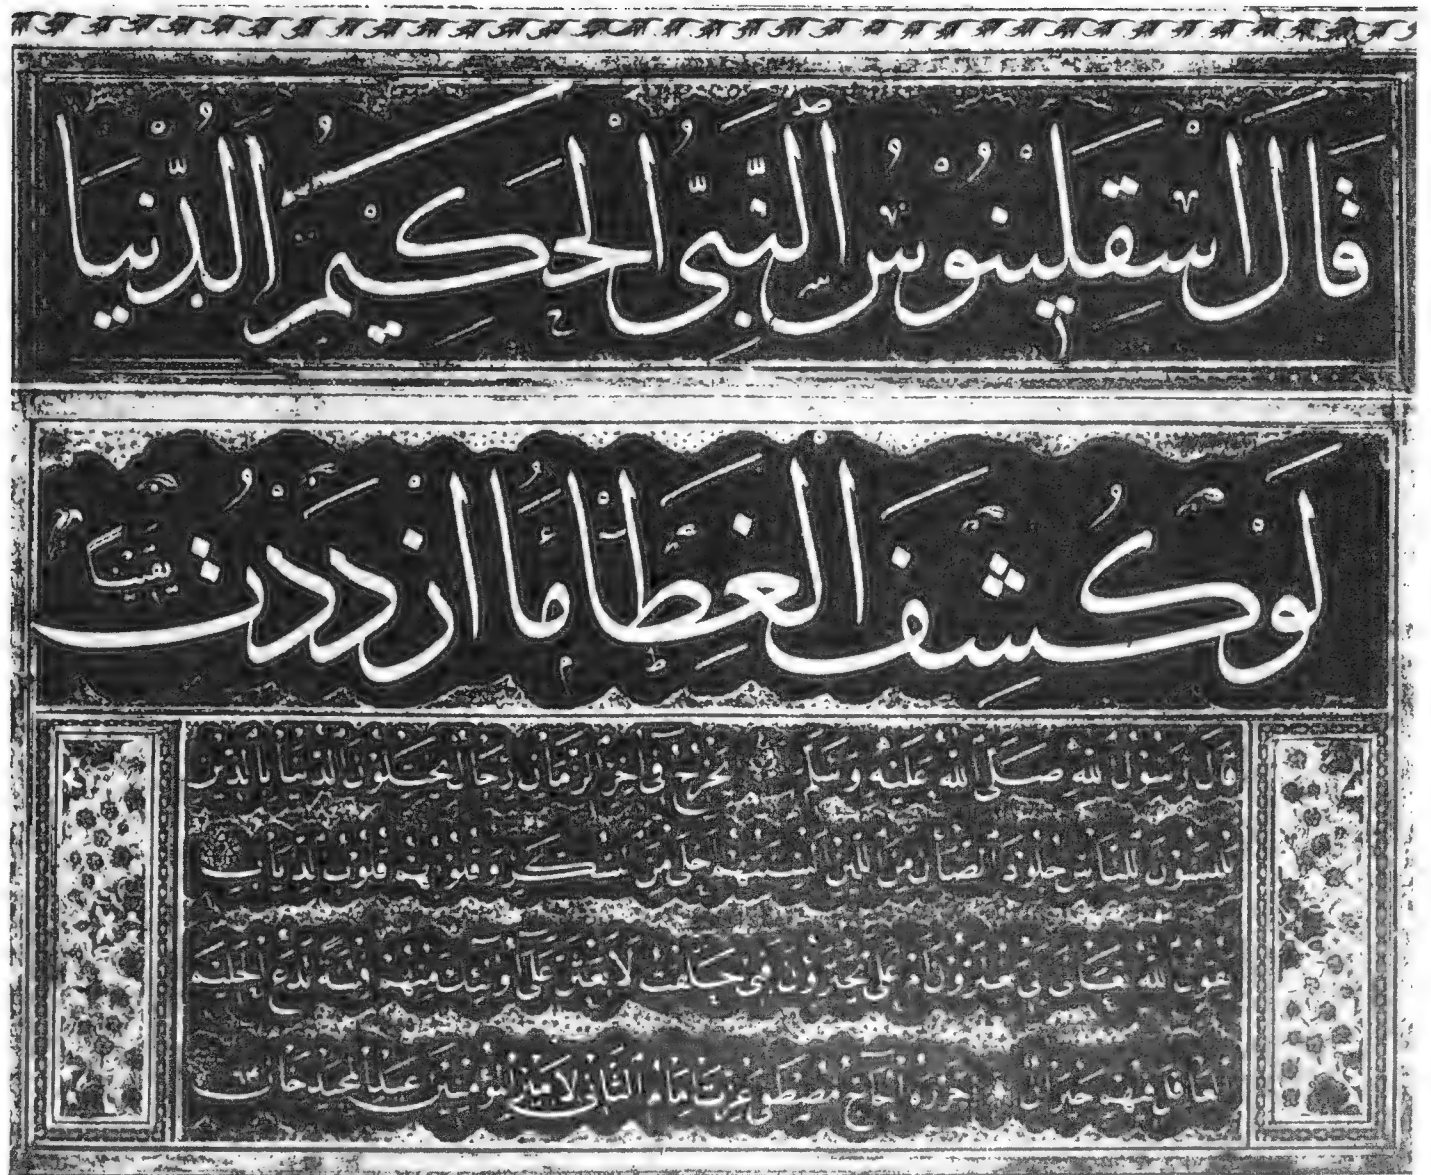 قَالَ اسْقَلِينُوسُ النَّبِيُّ الْحَكِيمُ الدُّنْيَا
لَوْ كُشِفَ الْغِطَاءُ مَا ازْدَدْتُ يَقِينًا
قَالَ رَسُولُ اللهِ صَلَّى اللهُ عَلَيْهِ وَسَلَّمَ يَخْرُجُ فِي آخِرِ الزَّمَانِ رِجَالٌ يَخْتِلُونَ الدُّنْيَا بِالدِّينِ
يَلْبَسُونَ لِلنَّاسِ جُلُودَ الضَّأْنِ مِنَ اللِّينِ أَلْسِنَتُهُمْ أَحْلَى مِنَ السُّكَّرِ وَقُلُوبُهُمْ قُلُوبُ الذِّئَابِ
يَقُولُ اللهُ تَعَالَى أَبِي يَغْتَرُّونَ أَمْ عَلَيَّ يَجْتَرِئُونَ فَبِي حَلَفْتُ لَأَبْعَثَنَّ عَلَى أُولَئِكَ مِنْهُمْ فِتْنَةً تَدَعُ الْحَلِيمَ
الْعَاقِلَ مِنْهُمْ حَيْرَانَ حَرَّرَهُ الْحَاجُّ مُصْطَفَى عِزَّتْ إِمَامُ الثَّانِي لِأَمِيرِ الْمُؤْمِنِينَ عَبْدُ الْمَجِيدْ خَانْ